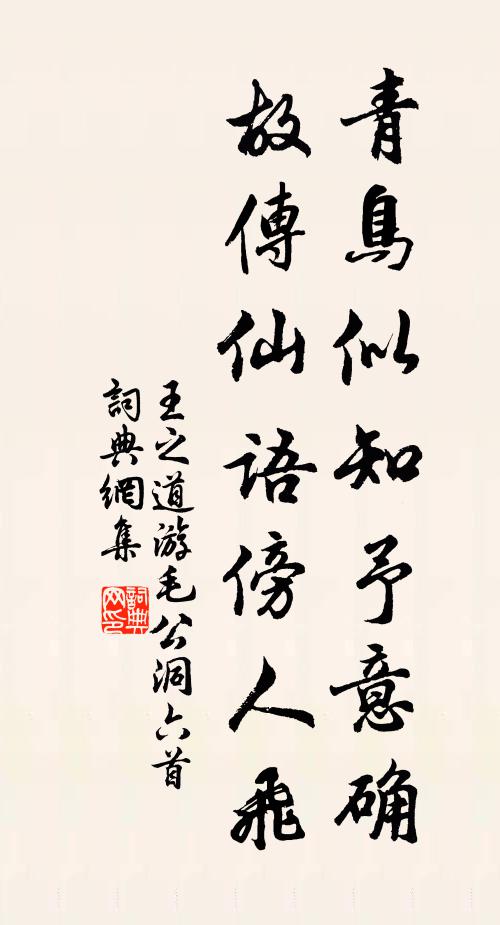 青鳥似知予意确
故傳仙語傍人飛
王之道游毛公洞六首
詞典網集
詞典网印